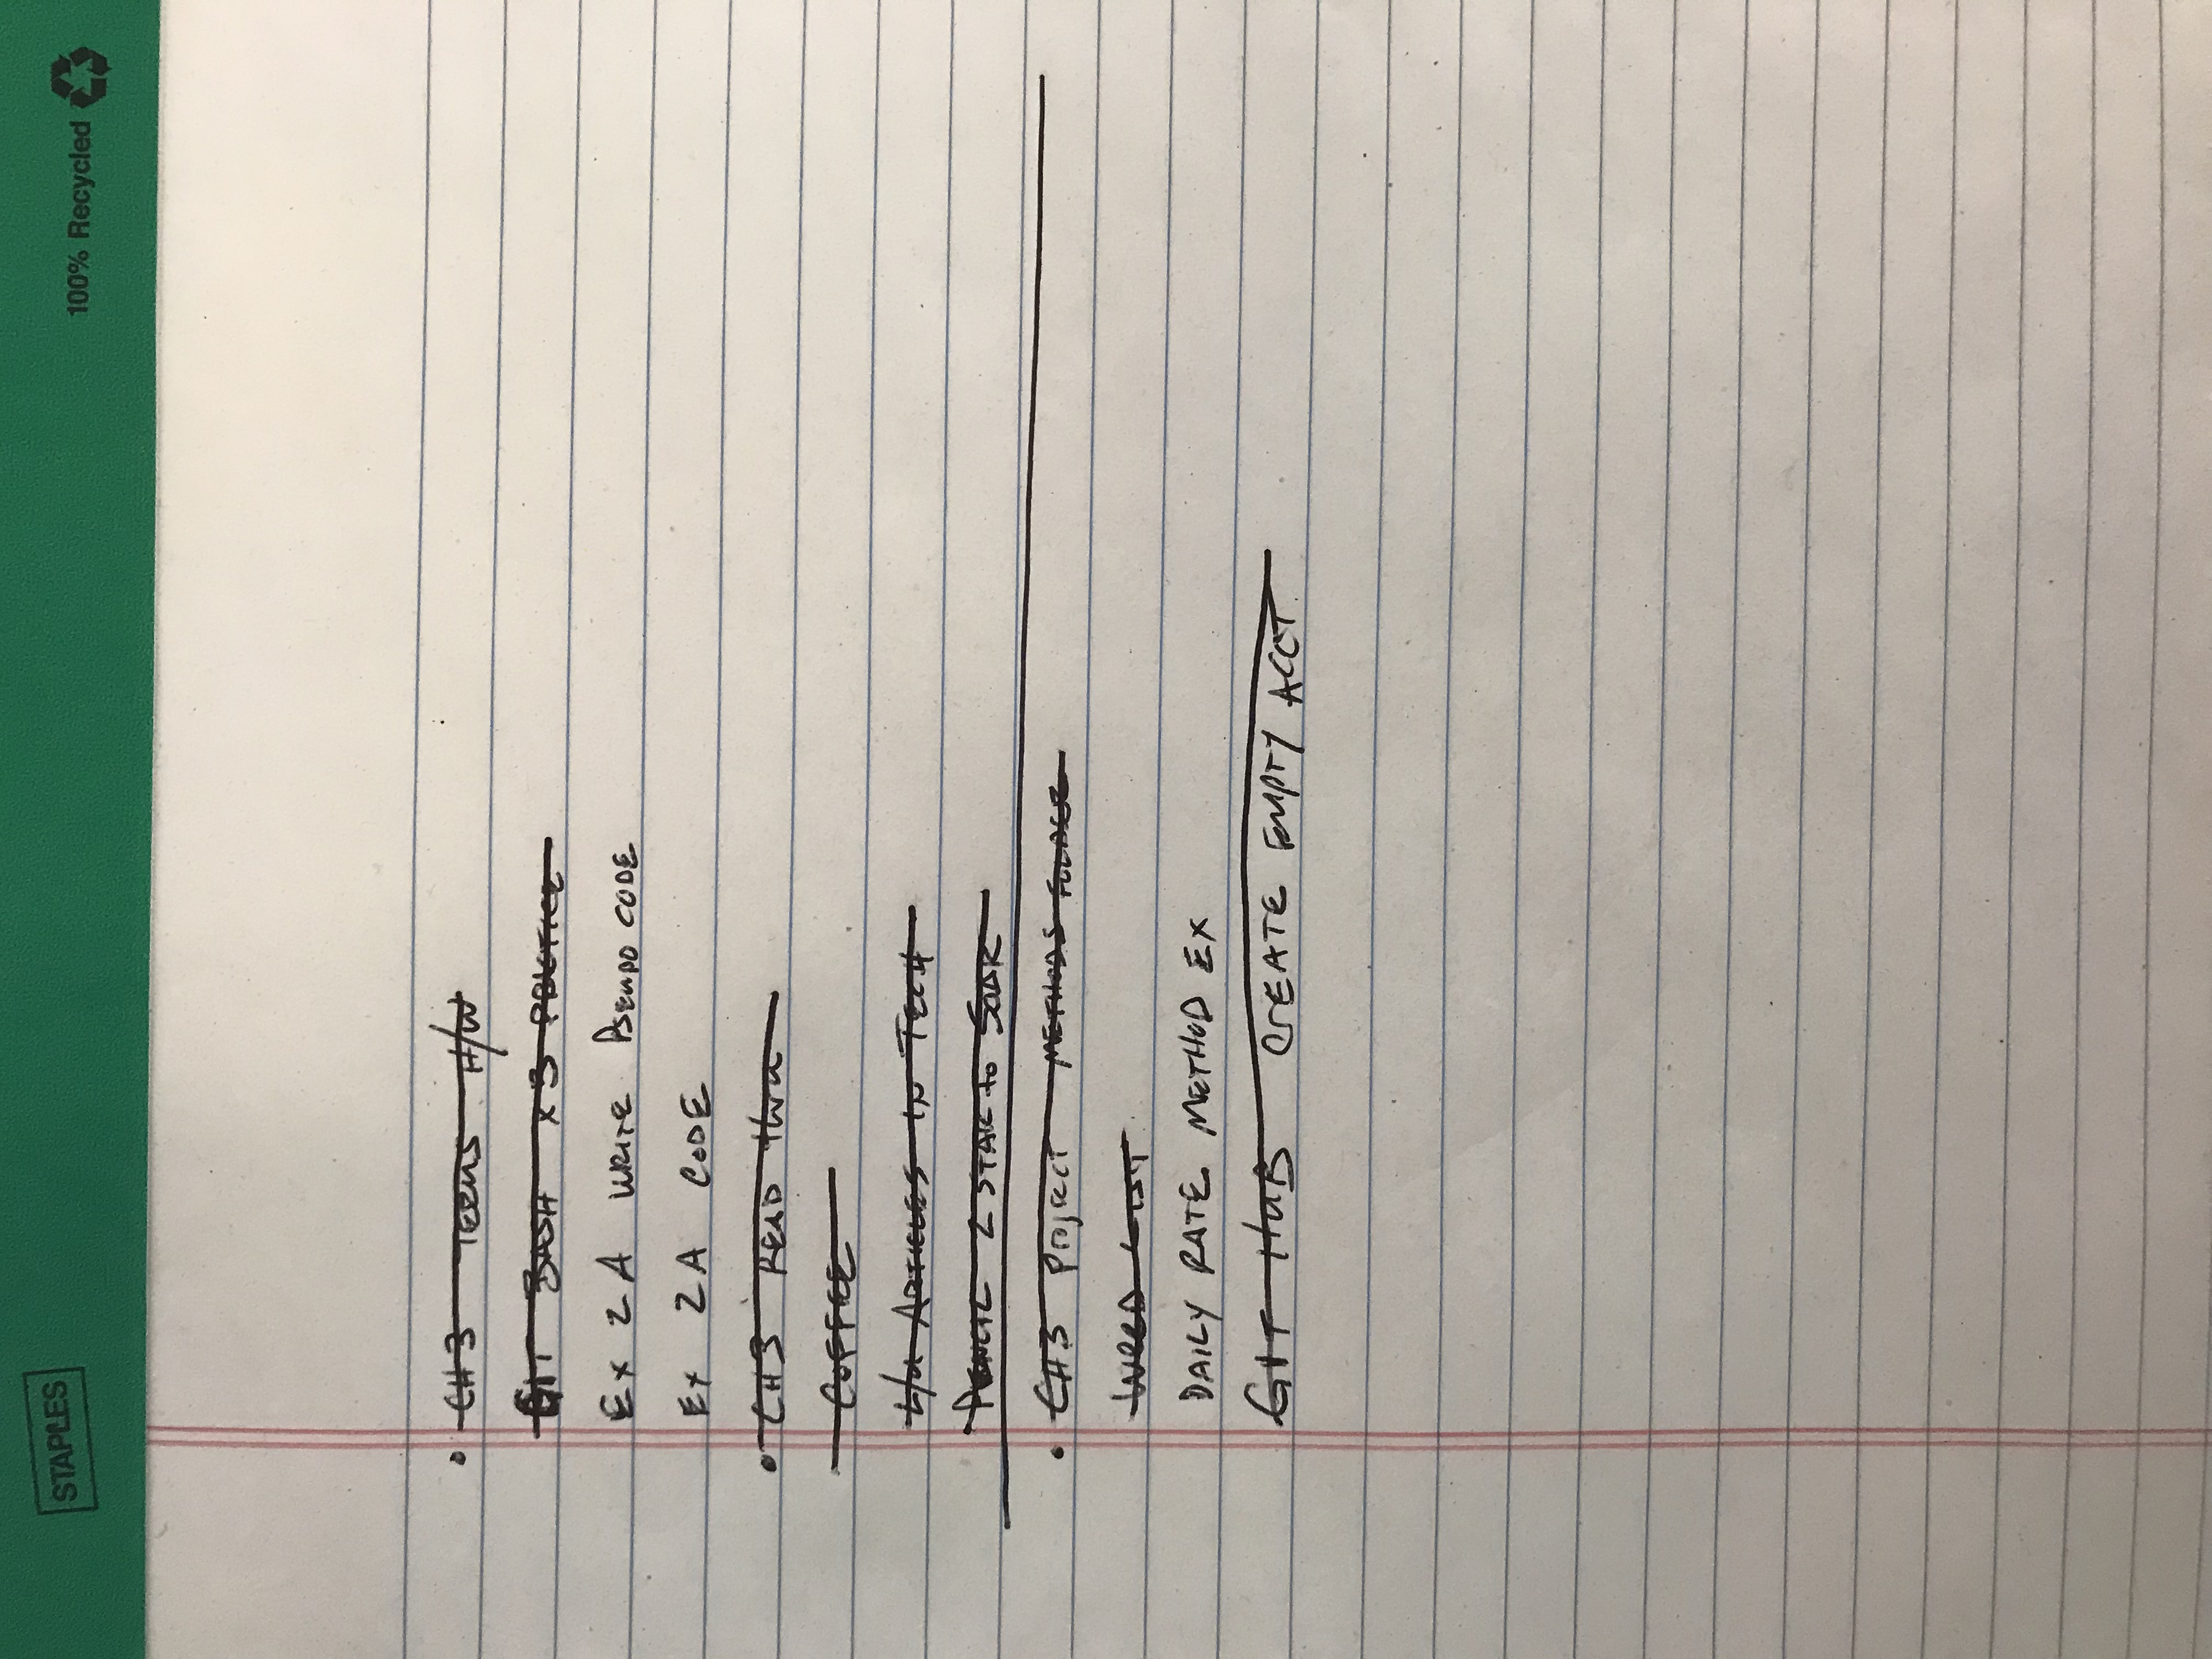 STAPLES
100% Recycled
• CH 3 TERMS H/W
GIT BASH x 3 PRCTICE
EX 2 A WRITE PSEUDO CODE
EX 2 A CODE
• CH 3 READ thru
COFFEE
L/U ARTICLES IN TECH
2 to SOAK
• CH 3 Project METHODS FOLDER
LIST
DAILY RATE METHOD EX
GIT HUB CREATE EMPTY ACCT.